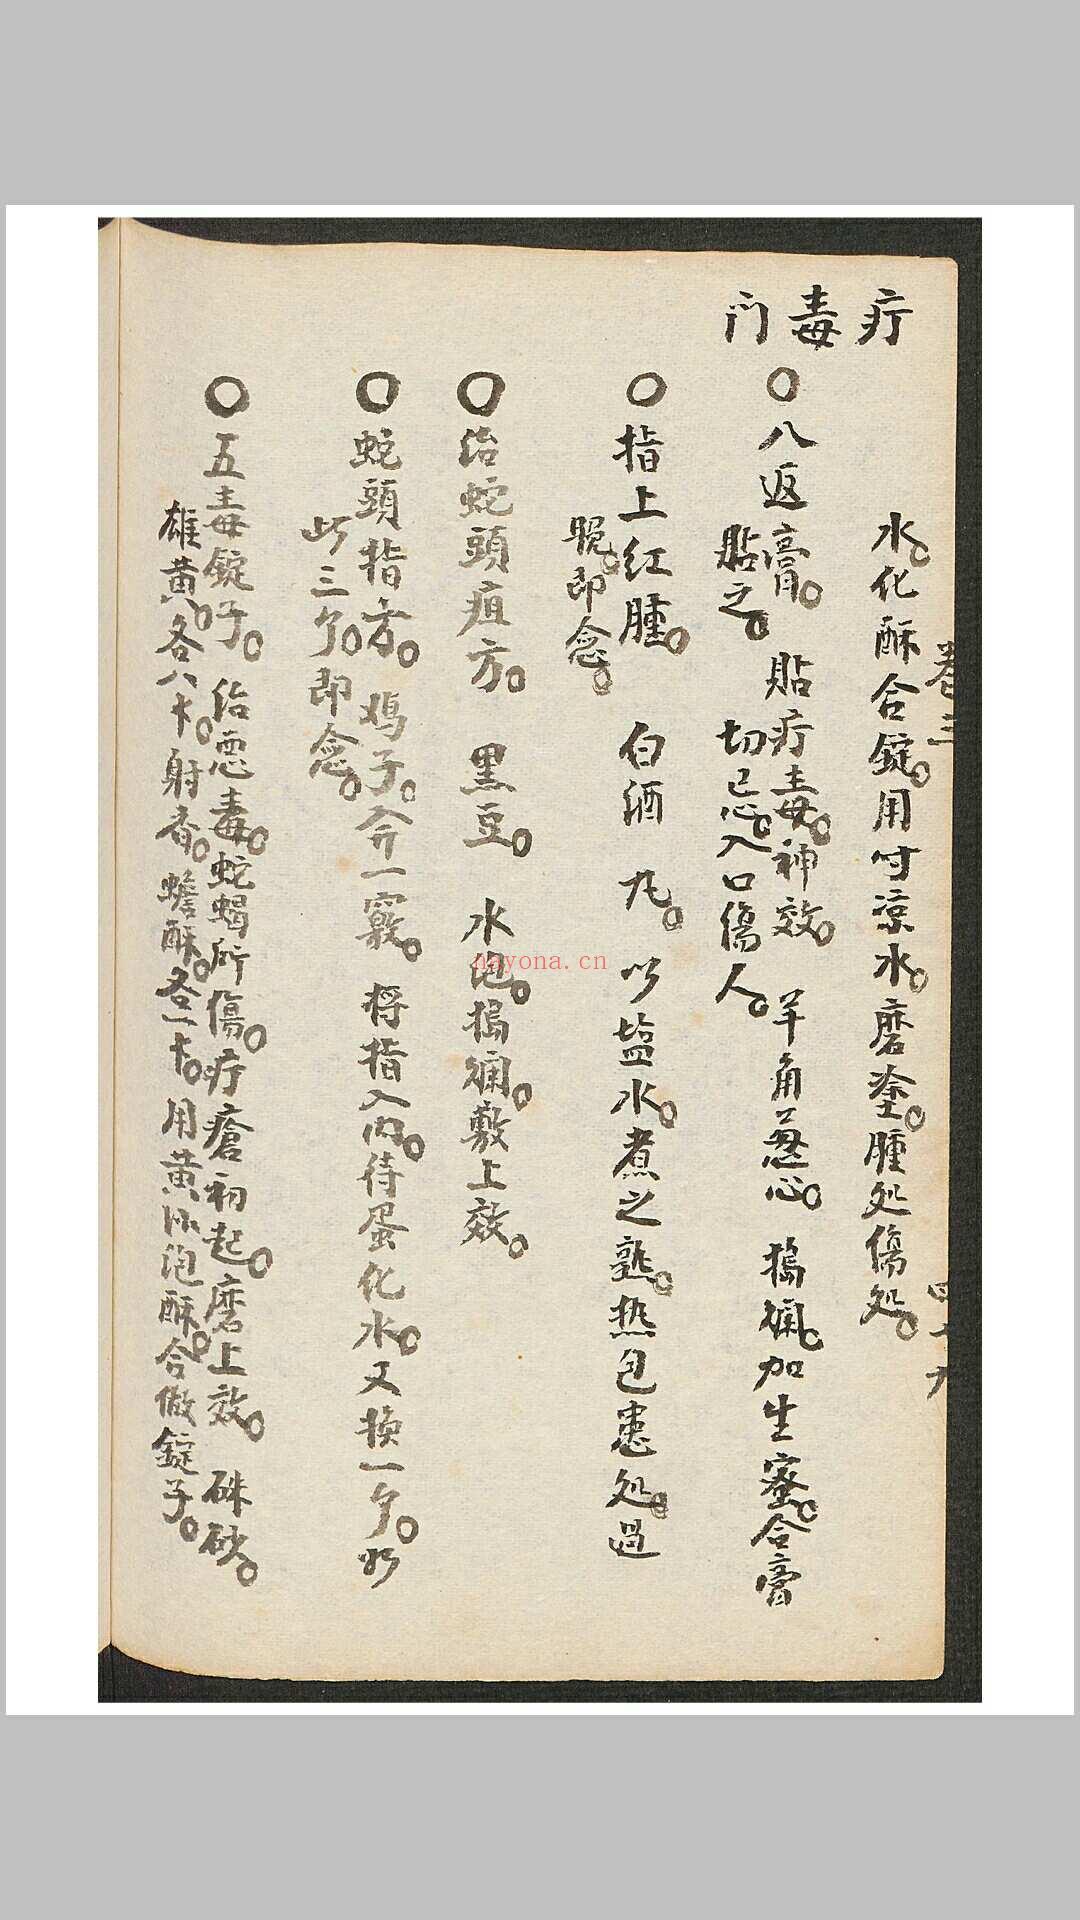 疔毒门
水。化酥合錠。用时凉水。磨塗。腫处傷处。
卷三
四十九
〇八返膏。 貼疔毒。神效。 羊角葱心。 搗爛。加生蜜。合膏
貼之。 切忌。入口傷人。
〇指上红腫。 白酒 以塩水。煮之熟。热包患处。過
晚。即念。
〇治蛇頭疽方。 黑豆。 水泡。搗爛。敷上效。
〇蛇頭指方。 鸡子。 一竅。 将指入内。待蛋化水。又换一个。如
此三个。即念。
〇五毒錠子。 治惡毒。蛇蝎所傷。疔瘡初起。磨上效。 硃砂。
雄黄。各八 射香。蟾酥。各一 用黄 泡酥。合做錠子。
nayona.cn